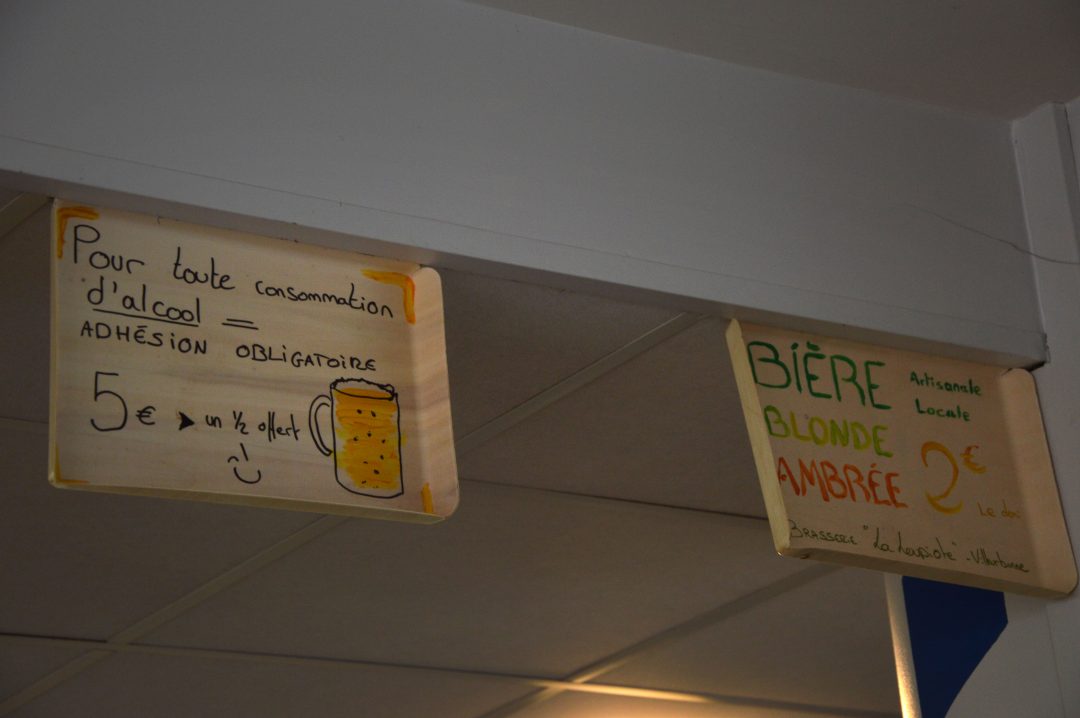 Pour toute consommation
d'alcool =
ADHÉSION OBLIGATOIRE
5€ ➤ un 1/2 offert
BIÈRE
Artisanale
Locale
BLONDE
AMBRÉE
2€
Le demi
BRASSERIE "La Loupiote" - Villeurbanne